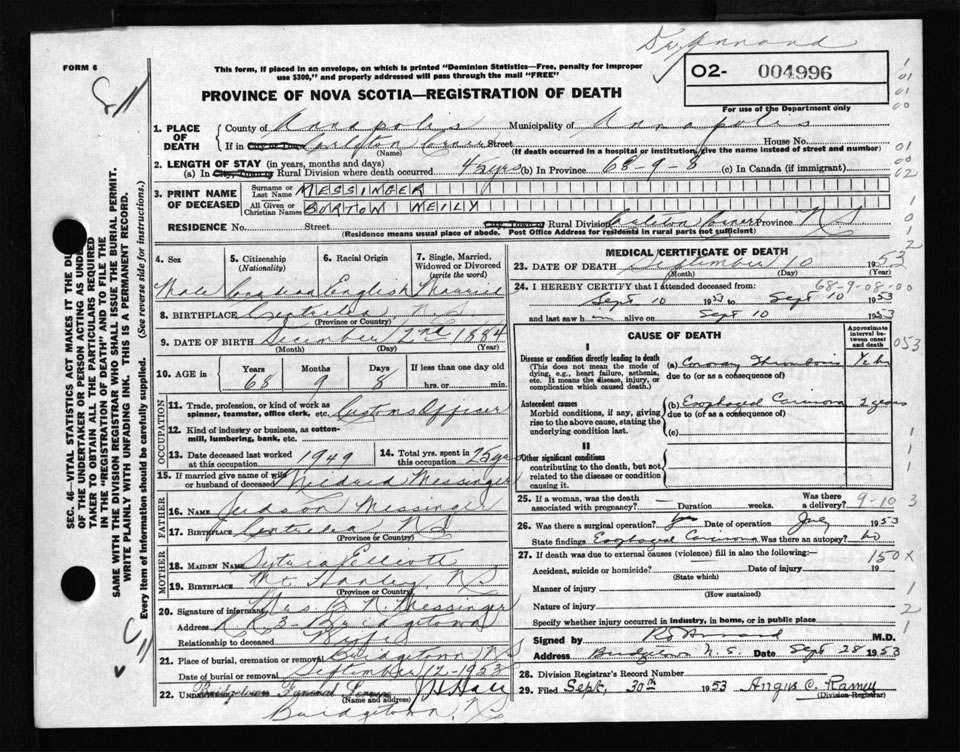 Dr Annand
FORM 6
This form, if placed in an envelope, on which is printed "Dominion Statistics—Free, penalty for improper
use $300," and properly addressed will pass through the mail "FREE"
O2- 004996
For use of the Department only
PROVINCE OF NOVA SCOTIA—REGISTRATION OF DEATH
SEC. 46—VITAL STATISTICS ACT MAKES IT THE DUTY
OF THE UNDERTAKER OR PERSON ACTING AS UNDER-
TAKER TO OBTAIN ALL THE PARTICULARS REQUIRED
IN THE "REGISTRATION OF DEATH" AND TO FILE THE
SAME WITH THE DIVISION REGISTRAR WHO SHALL ISSUE THE BURIAL PERMIT.
WRITE PLAINLY WITH UNFADING INK. THIS IS A PERMANENT RECORD.
Every item of information should be carefully supplied. (See reverse side for instructions.)
1. PLACE OF DEATH County of Annapolis Municipality of Annapolis
If in City or Town Carleton Corner Street House No.
(Name) (If death occurred in a hospital or institution, give the name instead of street and number)
2. LENGTH OF STAY (in years, months and days)
(a) In City, Town or Rural Division where death occurred 45 yrs (b) In Province 68-9-8 (c) In Canada (if immigrant)
3. PRINT NAME OF DECEASED Surname or Last Name MESSINGER
All Given or Christian Names BURTON MEILY
RESIDENCE No. Street City, Town or Rural Division Carleton Corner Province NS
(Residence means usual place of abode. Post Office Address for residents in rural parts not sufficient)
4. Sex 5. Citizenship (Nationality) 6. Racial Origin 7. Single, Married, Widowed or Divorced (write the word)
Male Canadian English Married
8. BIRTHPLACE Centrelea, N.S.
(Province or Country)
9. DATE OF BIRTH December 2nd 1884
(Month) (Day) (Year)
10. AGE in Years Months Days If less than one day old
68 9 8 hrs. or min.
OCCUPATION
11. Trade, profession, or kind of work as spinner, teamster, office clerk, etc. Customs Officer
12. Kind of industry or business, as cotton-mill, lumbering, bank, etc.
13. Date deceased last worked at this occupation 1949 14. Total yrs. spent in this occupation 25 yrs
15. If married give name of wife or husband of deceased Mildred Messinger
FATHER
16. NAME Judson Messinger
17. Birthplace Centrelea NS
(Province or Country)
MOTHER
18. MAIDEN NAME Elliott
19. BIRTHPLACE Mt Hanley NS
(Province or Country)
20. Signature of informant Mrs. B. N. Messinger
Address R R 3 - Bridgetown
Relationship to deceased Wife
21. Place of burial, cremation or removal Bridgetown NS
Date of burial or removal September 12-1953
22. UNDERTAKER Bridgetown Funeral
(Name and address)
Bridgetown, NS
MEDICAL CERTIFICATE OF DEATH
23. DATE OF DEATH September 10 1953
(Month) (Day) (Year)
24. I HEREBY CERTIFY that I attended deceased from: 68-9-08-00
Sept 10 1953 to Sept 10 1953
and last saw h im alive on Sept 10 1953
CAUSE OF DEATH
Approximate interval between onset and death
I
Disease or condition directly leading to death
(This does not mean the mode of dying, e.g., heart failure, asthenia, etc. It means the disease, injury, or complication which caused death.)
(a) Coronary Thrombosis
due to (or as a consequence of)
Antecedent causes
Morbid conditions, if any, giving rise to the above cause, stating the underlying condition last.
(b) Esophageal Carcinoma 2 years
due to (or as a consequence of)
(c)
II
Other significant conditions
contributing to the death, but not related to the disease or condition causing it.
25. If a woman, was the death associated with pregnancy? — Duration weeks. Was there a delivery? 9-10 3
26. Was there a surgical operation? Yes Date of operation July 1953
State findings Esophageal Carcinoma Was there an autopsy? No
27. If death was due to external causes (violence) fill in also the following:— 150 X
Accident, suicide or homicide? Date of injury 19
(State which)
Manner of injury
(How sustained)
Nature of injury
Specify whether injury occurred in industry, in home, or in public place
Signed by Annand M.D.
Address Bridgetown N.S. Date Sept 28 1953
28. Division Registrar's Record Number
29. Filed Sept. 30th 1953 Angus C. Ramey
(Division Registrar)